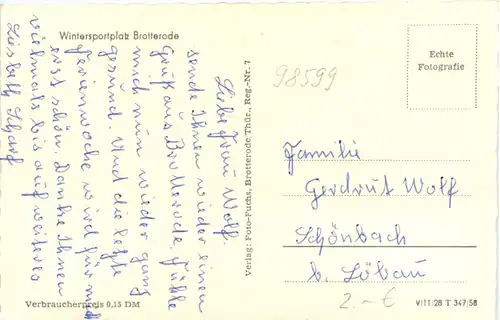 Wintersportplatz Brotterode
Liebe Frau Wolf.
sende Ihnen wieder einen
Gruß aus Brotterode. Fühle
mich nun wieder ganz
gesund. Und die letzte
Ferienwoche wird für mich
erst schön. Danke Ihnen
vielmals bis auf weiteres
Liesbeth Scharf
Verbraucherpreis 0,15 DM
Verlag: Foto-Fuchs, Brotterode/Thür., Reg.-Nr. 7
98599
Echte
Fotografie
Familie
Gerdrut Wolf
Schönbach
b. Löbau
2.- €
V/11/28 T 347/58